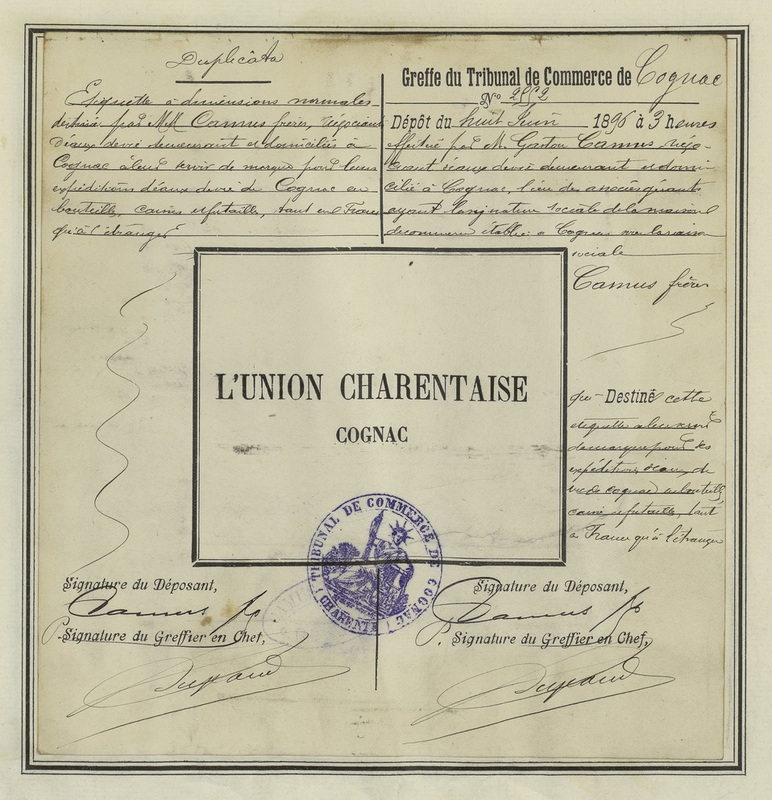 Duplicata
Etiquette à dimensions normales
déposée par MM Camus frères, négociants
d'eaux de vie demeurant et domiciliés à
Cognac à leur servir de marque pour leurs
expéditions d'eaux de vie de Cognac en
bouteilles, caisses et futailles, tant en France
qu'à l'étranger
Greffe du Tribunal de Commerce de Cognac
No 2552
Dépôt du huit Juin 1896 à 3 heures
effectué par M. Gaston Camus négo-
ciant d'eaux de vie demeurant et domi-
cilié à Cognac, l'un des associés gérants
ayant la signature sociale de la maison
de commerce établie à Cognac sous la raison
sociale
Camus frères
L'UNION CHARENTAISE
COGNAC
qui Destine cette
etiquette à leur servir
de marque pour les
expéditions d'eaux de
vie de cognac en bouteilles,
caisses et futailles, tant
en France qu'à l'étranger
TRIBUNAL DE COMMERCE DE COGNAC
(CHARENTE)
Signature du Déposant,
Camus
P. Signature du Greffier en Chef,
Signature du Déposant,
Camus
P. Signature du Greffier en Chef,